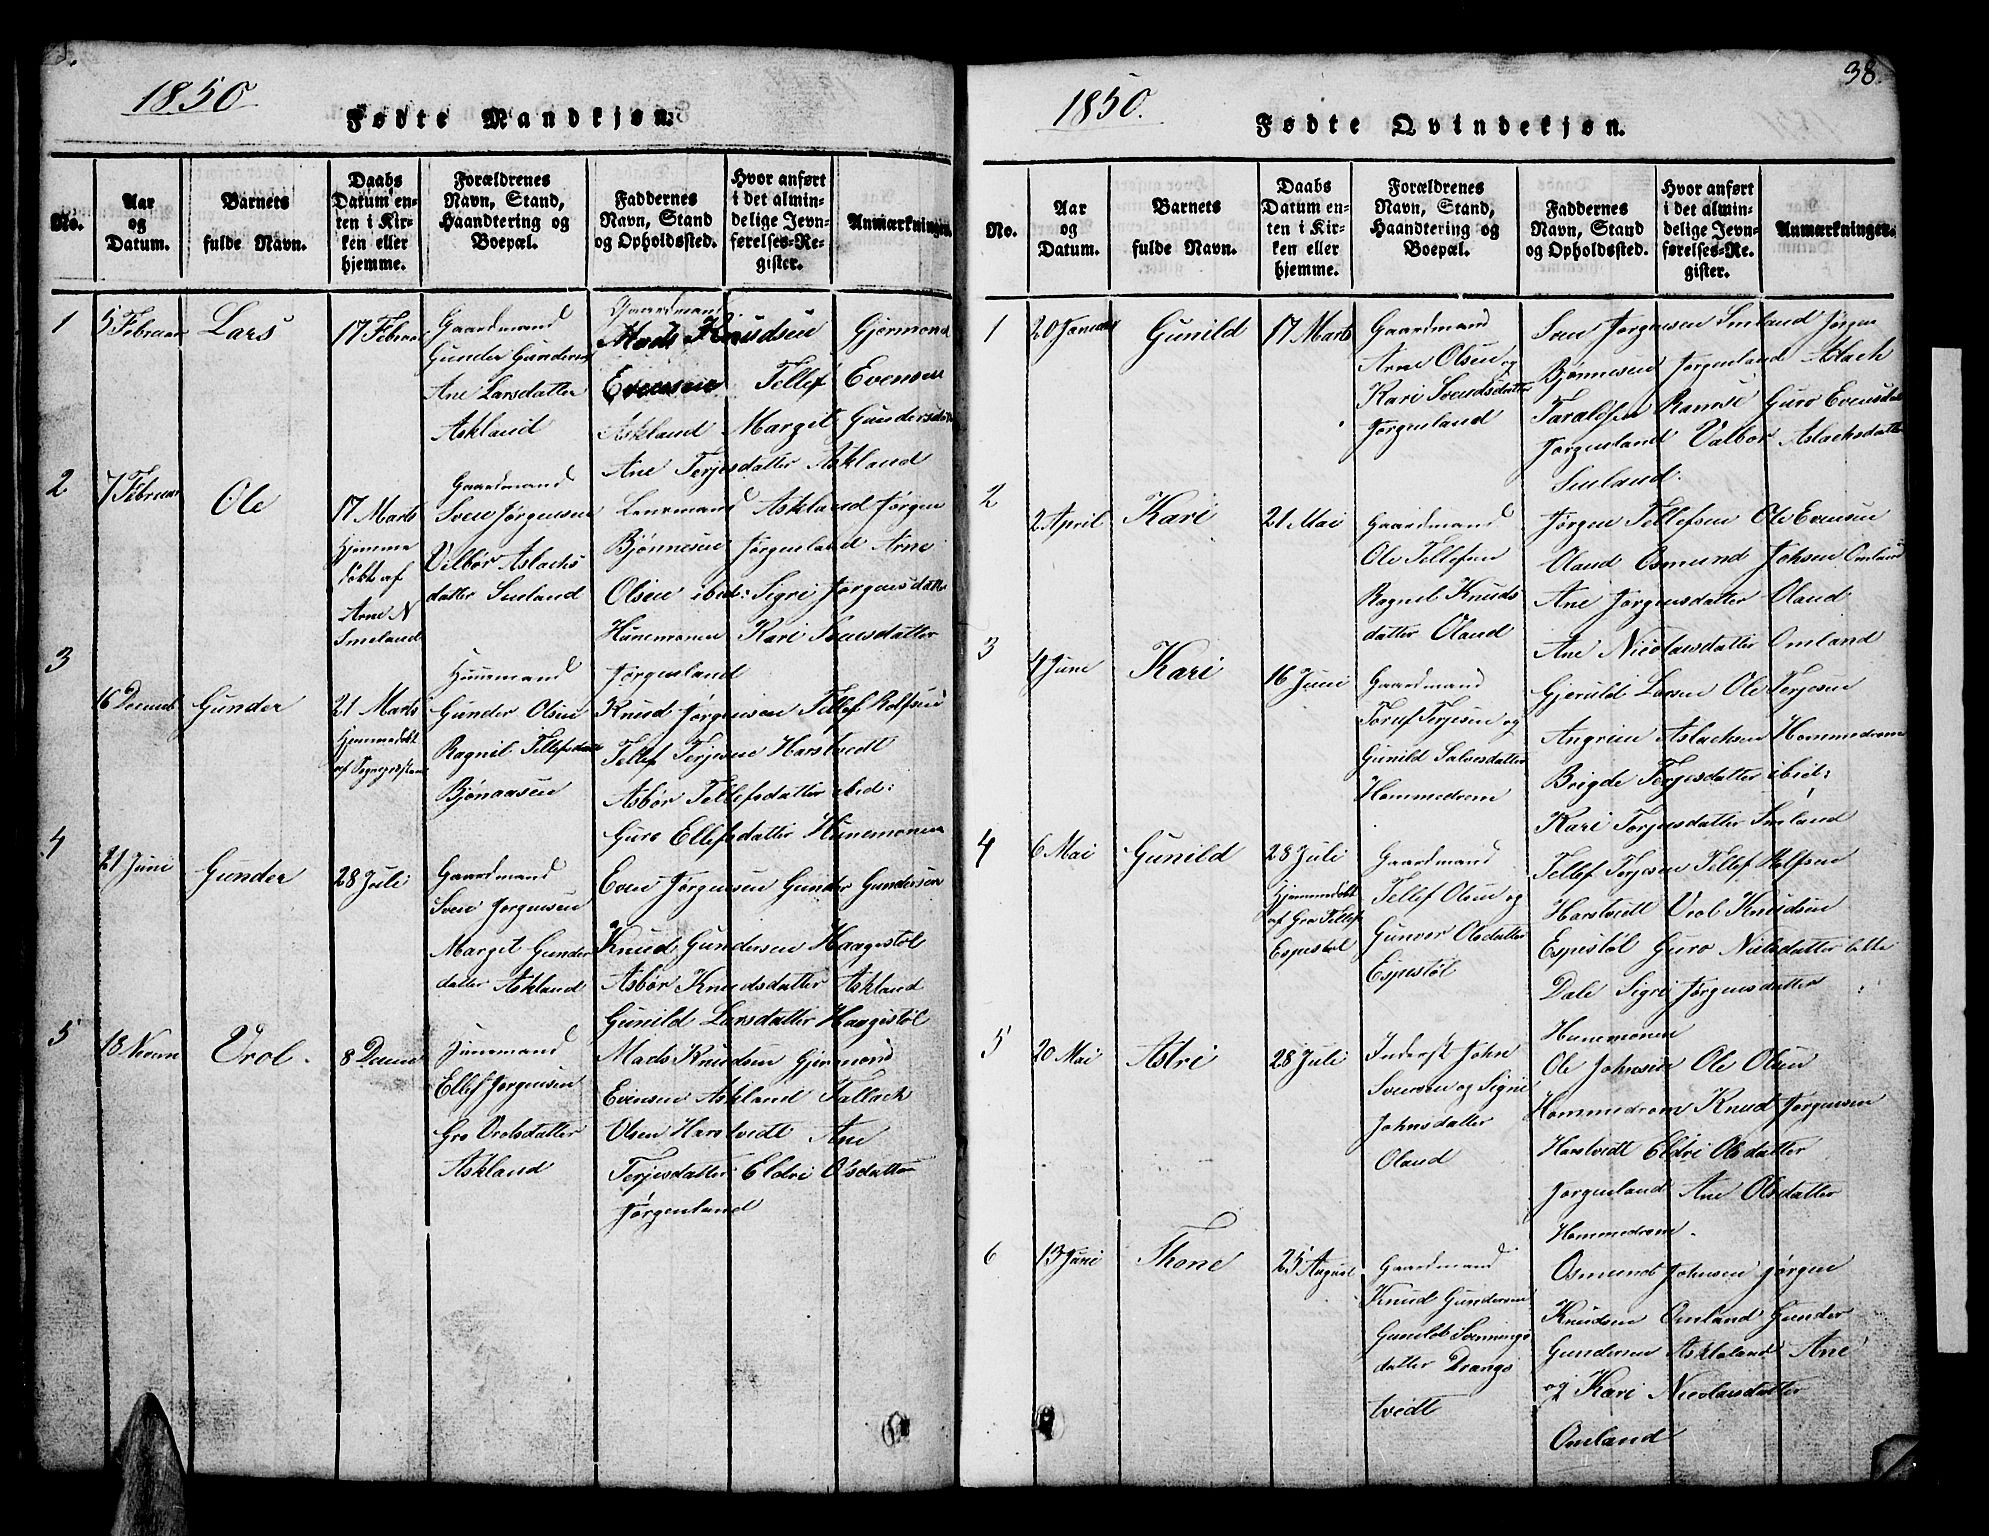 1850
Fødte Mandkjøn.
No.
Aar
og
Datum.
Barnets
fulde Navn.
Daabs
Datum en-
ten i Kir-
ken eller
hjemme.
Forældrenes
Navn, Stand,
Haandtering og
Boepæl.
Faddernes
Navn, Stand
og Opholdssted.
Hvor anført
i det almin-
delige Jevn-
førelses-Re-
gister.
Anmærkninger.
1
5 Februar
Lars
17 Februar
Gaardmand
Gunder Gunders
Ane Larsdatter
Askland
Gaardmand
Mads Knudsen Gjermond
Evensen Tellef Evensen
Askland Margit Gundersdatter
Ane Terjesdatter Askland
2
7 Februar
Ole
17 Marts
Hjemme
døbt af
Arne N
Smeland
Gaardmand
Sven Jørgensen
Valbor Aslachs
datter Smland
Lensmand Askland Jørgen
Bjønnesen Jørgenland Arne
Olsen ibid: Sigri Jørgensdatter
Hunemonen Kari Svensdatter
Jørgenland
3
16 Decemb
Gunder
21 Marts
Hjemmedøbt
Huusmand
Gunder Olsen
Ragnil Tellefsdatter
Bjønaasen
Knud Jørgensen Tellef Rolfsen
Tellef Terjesen Harstvedt
Asbør Tellefsdatter ibid:
Guro Ellefsdatter Hunemonen
4
21 Juni
Gunder
28 Juli
Gaardmand
Sven Jørgensen
Margit Gunder
datter Askland
Even Jørgensen Gunder Gundersen
Knud Gundersen Haagestøl
Asbør Knudsdatter Askland
Gunild Larsdatter Haagestøl
5
18 Novem
Vrol
8 Decem
Huusmand
Ellef Jørgensen
Gro Vrolsdatter
Askland
Mads Knudsen Gjermond
Evensen Askland Tallach
Olsen Harstvedt Ane
Terjesdatter Eldri Olsdatter
Jørgenland
38.
1850.
Fødte Qvindekjøn.
No.
Aar
og
Datum.
Barnets
fulde Navn.
Daabs
Datum en-
ten i Kir-
ken eller
hjemme.
Forældrenes
Navn, Stand,
Haandtering og
Boepæl.
Faddernes
Navn, Stand
og Opholdssted.
Hvor anført
i det almin-
delige Jevn-
førelses-Re-
gister.
Anmærkninger.
1
20 Januar
Gunild
17 Marts
Gaardmand
Arne Olsen og
Kari Svendsdatter
Jørgenland
Sven Jørgensen Smland Jørgen
Bjønnesen Jørgenland Aslach
Taralsen Ramse Guro Evensdatter
Jørgenland Valbor Aslachsdatter
Smland.
2
2 April
Kari
21 Mai
Gaardmand
Ole Tellefsen
Ragnil Knuds
datter Oland
Jørgen Tellefsen Ole Evensen
Oland Osmund Johsen Omland
Ane Jørgensdatter Oland
Ane Nicolaisdatter Omland
3
4 June
Kari
16 Juni
Gaardmand
Toruf Terjesen og
Gunild Salvesdatter
Hommedrom
Gjeruld Larsen Ole Terjesen
Angrim Aslachsen Hommedrom
Brigde Terjesdatter ibid:
Kari Torjusdatter Smland
4
6 Mai
Gunild
28 Juli
Hjemmedøbt
af Gro Tellef
Espestøl
Gaardmand
Tellef Olsen og
Gunvor Olsdatter
Espestøl
Tellef Terjesen Tellef Rolfsen
Harstvedt Vrol Knudsen
Espestøl Guro Nielsdatter Lille
Dale Sigri Jørgensdatter
Hunemonen
5
20 Mai
Astri
28 Juli
Inderst John
Svensen og Signe
Johnsdatter
Oland
Ole Johnsen Ole Olsen
Hommedrom Knud Jørgensen
Harstvedt Eldri Olsdatter
Jørgenland Ane Olsdatter
Hommedrom.
6
13 Juni
Thone
25 August
Gaardmand
Knud Gundersen
Gunild Svennings
datter Drangs
tvedt
Osmund Johnsen Jørgen
Knudsen Omland Gunder
Gundersen Askland Ane
og Kari Nicolaisdatter
Omland